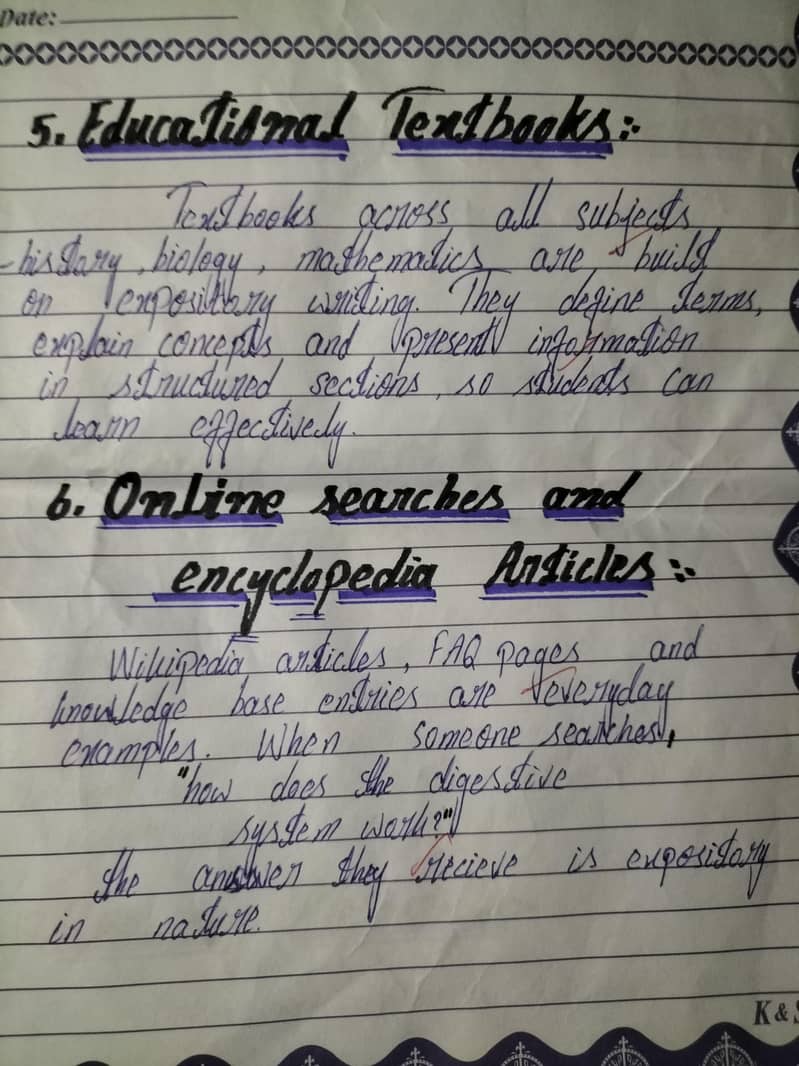 Date:
5. Educational Textbooks:-
Textbooks across all subjects
- history, biology, mathematics are build
on expository writing. They define terms,
explain concepts and present information
in structured sections, so students can
learn effectively.
6. Online searches and
encyclopedia Articles:-
Wikipedia articles, FAQ pages and
knowledge base entries are everyday
examples. When someone searches,
"how does the digestive
system work?"
the answer they recieve is expository
in nature.
K &